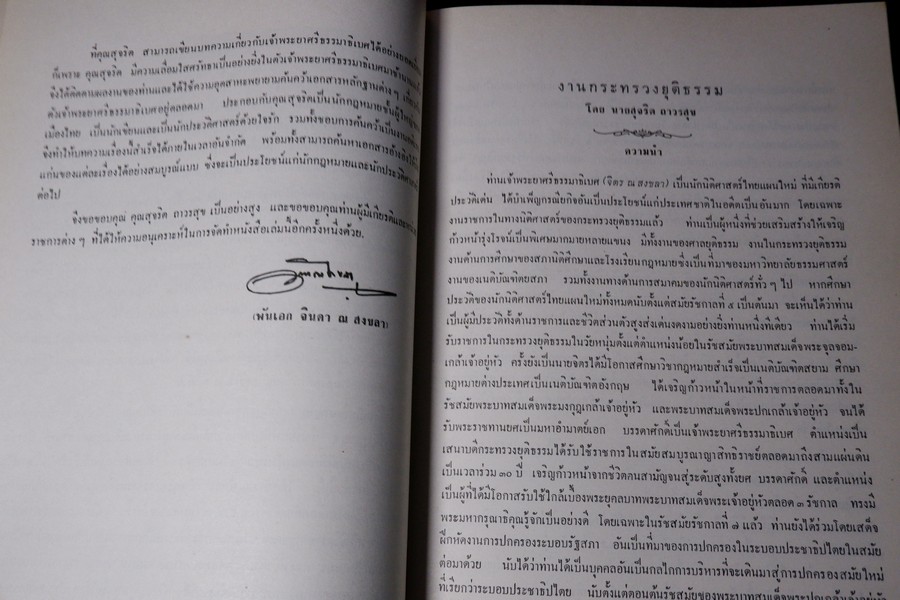 ที่คุณสุจริต สามารถเขียนบทความเกี่ยวกับเจ้าพระยาศรีธรรมาธิเบศได้อย่าง
ก็เพราะ คุณสุจริต มีความเลื่อมใสศรัทธาเป็นอย่างยิ่งในตัวเจ้าพระยาศรีธรรมาธิเบศมา
จึงได้ติดตามผลงานของท่านและได้ใช้ความอุตสาหะพยายามค้นคว้าเอกสารหลักฐานต่างๆ
ตัวเจ้าพระยาศรีธรรมาธิเบศอยู่ตลอดมา ประกอบกับคุณสุจริตเป็นนักกฎหมายชั้น
เมืองไทย เป็นนักเขียนและเป็นนักประวัติศาสตร์ด้วยใจรัก รวมทั้งชอบการค้นคว้าเป็น
จึงทำให้บทความเรื่องนี้สำเร็จได้ภายในเวลาอันจำกัด พร้อมทั้งสามารถค้นหาเอกสารอ้างอิง
แก่นของแต่ละเรื่องได้อย่างสมบูรณ์แบบ ซึ่งจะเป็นประโยชน์แก่นักกฎหมายและนักประวัติศาสตร์
ต่อไป
จึงขอขอบคุณ คุณสุจริต ถาวรสุข เป็นอย่างสูง และขอขอบคุณท่านผู้มีเกียรติและ
ราชการต่าง ๆ ที่ได้ให้ความอนุเคราะห์ในการจัดทำหนังสือเล่มนี้อีกครั้งหนึ่งด้วย.
(พันเอก จินดา ณ สงขลา)
งานกระทรวงยุติธรรม
โดย นายสุจริต ถาวรสุข
ความนำ
ท่านเจ้าพระยาศรีธรรมาธิเบศ (จิตร ณ สงขลา) เป็นนักนิติศาสตร์ไทยแผนใหม่ ที่มีเกียรติ
ประวัติเด่น ได้บำเพ็ญกรณียกิจอันเป็นประโยชน์แก่ประเทศชาติในอดีตเป็นอันมาก โดยเฉพาะ
งานราชการในทางนิติศาสตร์ของกระทรวงยุติธรรมแล้ว ท่านเป็นผู้หนึ่งที่ช่วยเสริมสร้างให้เจริญ
ก้าวหน้ารุ่งโรจน์เป็นพิเศษมากมายหลายแขนง มีทั้งงานของศาลยุติธรรม งานในกระทรวงยุติธรรม
งานด้านการศึกษาของสภานิติศึกษาและโรงเรียนกฎหมายซึ่งเป็นที่มาของมหาวิทยาลัยธรรมศาสตร์
งานของเนติบัณฑิตยสภา รวมทั้งงานทางด้านการสมาคมของนักนิติศาสตร์ทั่ว ๆ ไป หากศึกษา
ประวัติของนักนิติศาสตร์ไทยแผนใหม่ทั้งหมดนับตั้งแต่สมัยรัชกาลที่ ๕ เป็นต้นมา จะเห็นได้ว่าท่าน
เป็นผู้มีประวัติทั้งด้านราชการและชีวิตส่วนตัวสูงส่งเด่นงดงามอย่างยิ่งท่านหนึ่งทีเดียว ท่านได้เริ่ม
รับราชการในกระทรวงยุติธรรมในวัยหนุ่มตั้งแต่ตำแหน่งน้อยในรัชสมัยพระบาทสมเด็จพระจุลจอม-
เกล้าเจ้าอยู่หัว ครั้งยังเป็นนายจิตรได้มีโอกาสศึกษาวิชากฎหมายสำเร็จเป็นเนติบัณฑิตสยาม ศึกษา
กฎหมายต่างประเทศเป็นเนติบัณฑิตอังกฤษ ได้เจริญก้าวหน้าในหน้าที่ราชการตลอดมาทั้งใน
รัชสมัยพระบาทสมเด็จพระมงกุฎเกล้าเจ้าอยู่หัว และพระบาทสมเด็จพระปกเกล้าเจ้าอยู่หัว จนได้
รับพระราชทานยศเป็นมหาอำมาตย์เอก บรรดาศักดิ์เป็นเจ้าพระยาศรีธรรมาธิเบศ ตำแหน่งเป็น
เสนาบดีกระทรวงยุติธรรมได้รับใช้ราชการในสมัยสมบูรณาญาสิทธิราชย์ตลอดมาถึงสามแผ่นดิน
เป็นเวลาร่วม ๓๐ ปี เจริญก้าวหน้าจากชีวิตคนสามัญจนสู่ระดับสูงทั้งยศ บรรดาศักดิ์ และตำแหน่ง
เป็นผู้ที่ได้มีโอกาสรับใช้ใกล้เบื้องพระยุคลบาทพระบาทสมเด็จพระเจ้าอยู่หัวตลอด ๓ รัชกาล ทรงมี
พระมหากรุณาธิคุณรู้จักเป็นอย่างดี โดยเฉพาะในรัชสมัยรัชกาลที่ ๗ แล้ว ท่านยังได้ร่วมโดยเสด็จ
ฝึกหัดงานการปกครองระบอบรัฐสภา อันเป็นที่มาของการปกครองในระบอบประชาธิปไตยในสมัย
ต่อมาด้วย นับได้ว่าท่านได้เป็นบุคคลอันเป็นกลไกการบริหารที่จะเดินมาสู่การปกครองสมัยใหม่
ที่เรียกว่าระบอบประชาธิปไตย นับตั้งแต่ตอนต้นรัชสมัยของพระบาทสมเด็จพระปกเกล้าเจ้าอยู่หัว